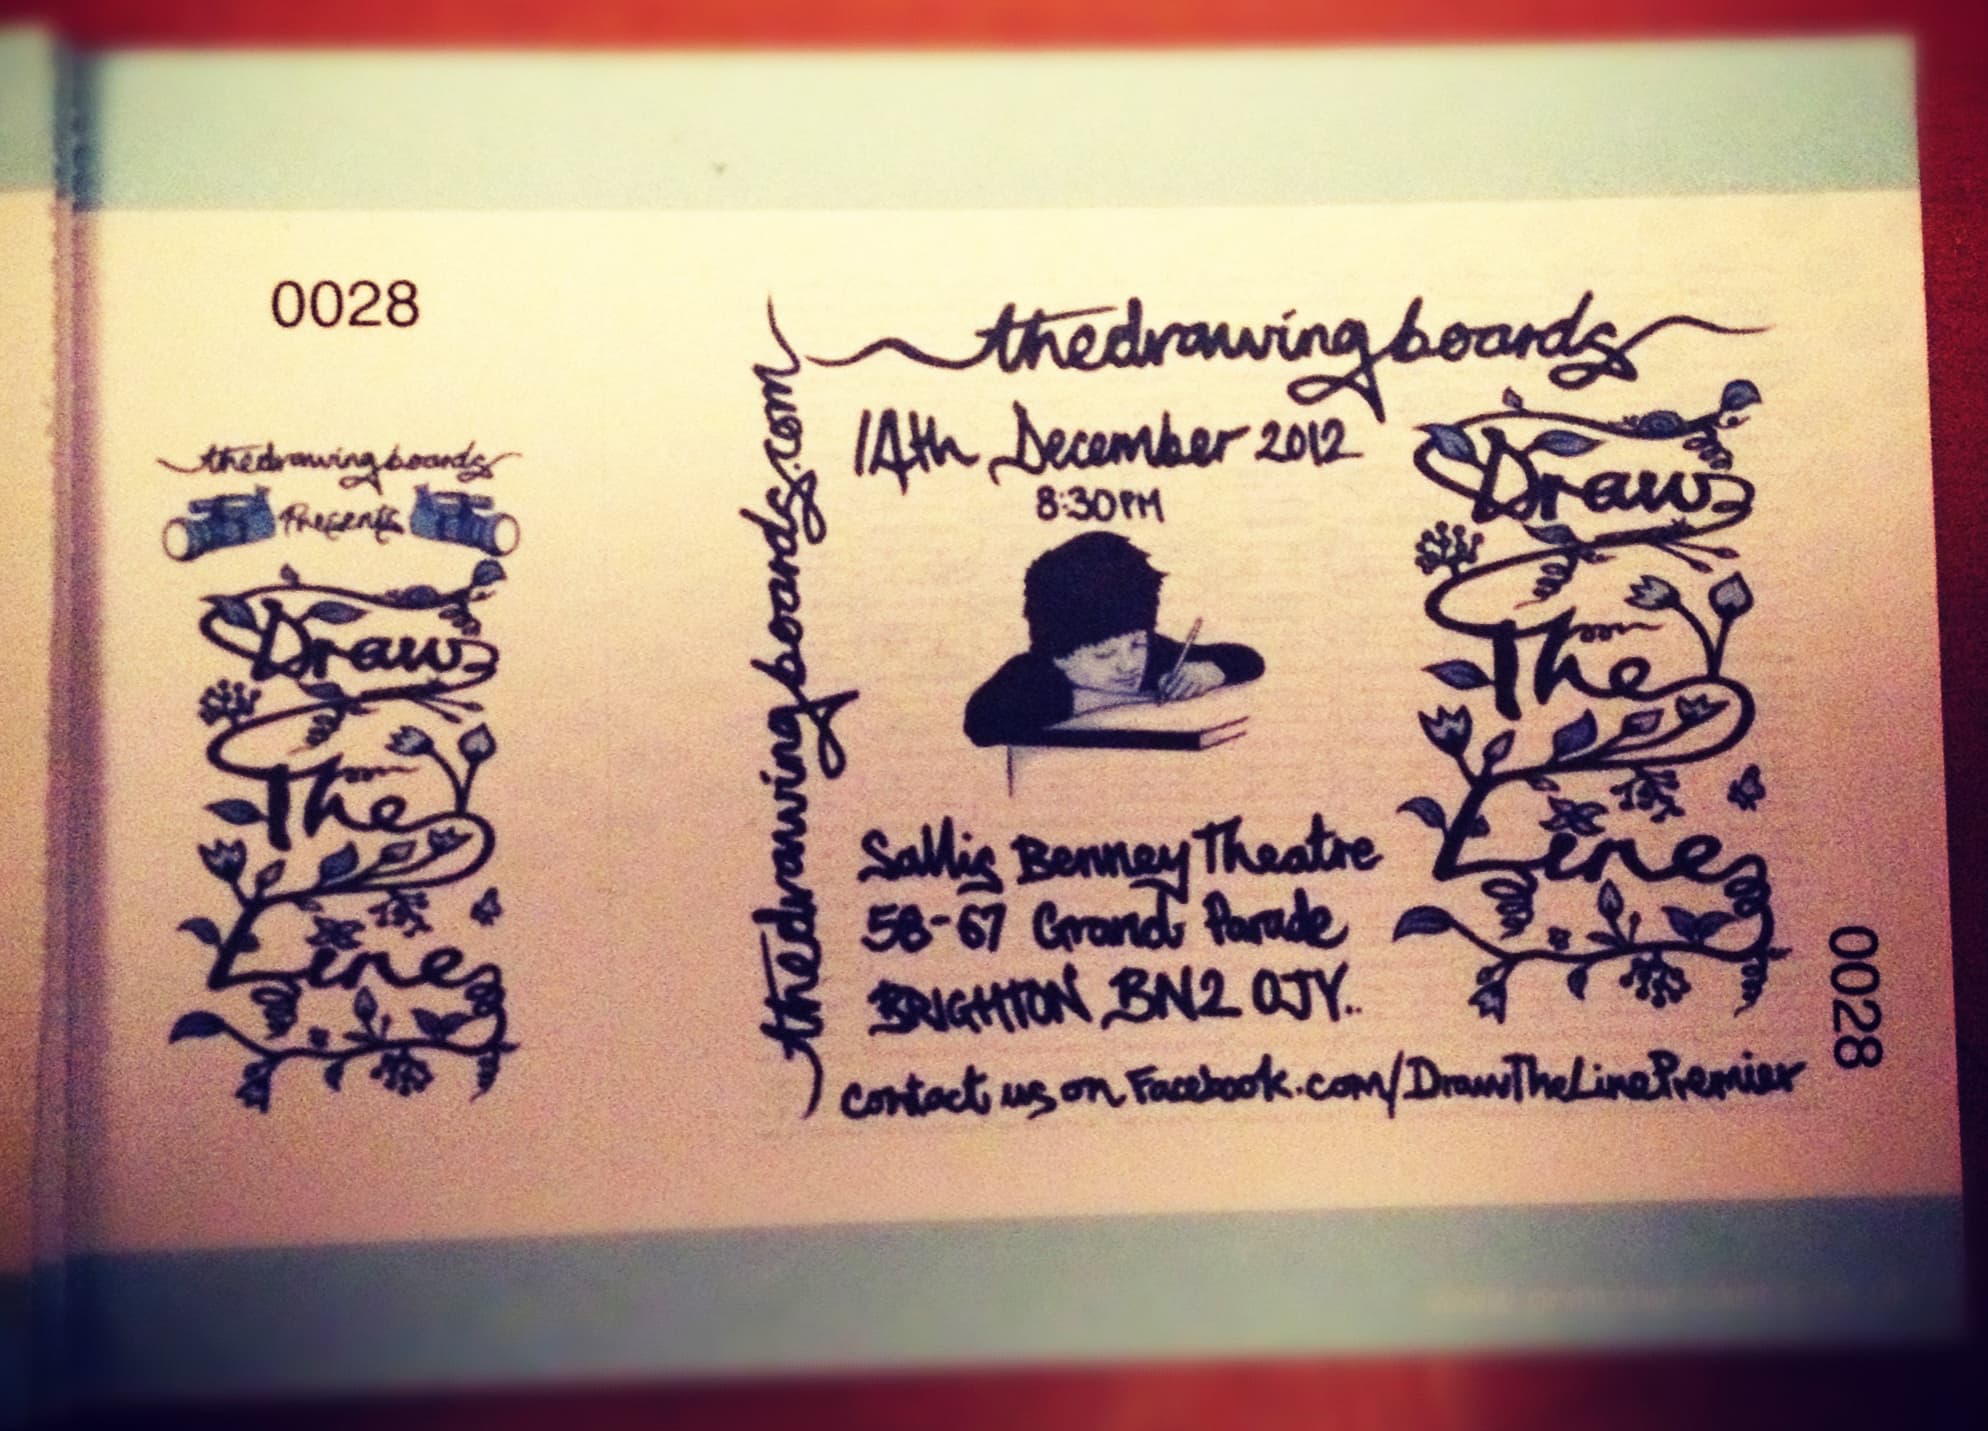 0028
thedrawingboards
Presents
Draw
The
Line
thedrawingboards.com
thedrawingboards
14th December 2012
8:30PM
Sallis Benney Theatre
58-67 Grand Parade
BRIGHTON BN2 0JY..
contact us on Facebook.com/DrawTheLinePremier
Draw
The
Line
0028